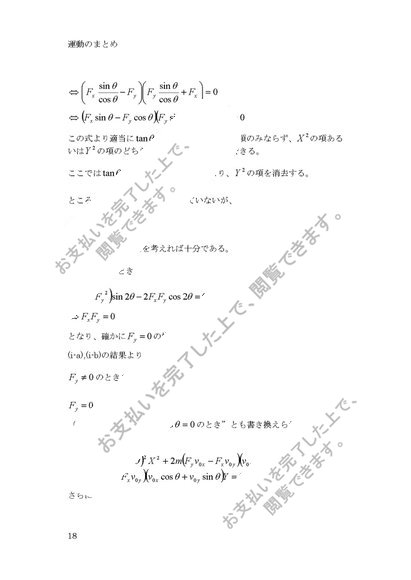 運動のまとめ
⇔ (F_x sinθ/cosθ − F_y)(F_y sinθ/cosθ + F_x) = 0
⇔ (F_x sinθ − F_y cosθ)(F_y s 0
この式より適当に tanθ 項のみならず、X²の項ある
いはY²の項のどち きる。
ここでは tanθ り、Y²の項を消去する。
ところ いないが、
を考えれば十分である。
とき
F_y²)sin 2θ − 2F_xF_y cos 2θ =
⇒ F_xF_y = 0
となり、確かに F_y = 0 の
(i-a),(i-b)の結果より
F_y ≠ 0 のとき
F_y = 0
θ = 0 のとき" とも書き換えら
)² X² + 2m(F_y v_0x − F_x v_0y)(v_0
F_x v_0y)(v_0x cosθ + v_0y sinθ)Y =
さら
18
お支払いを完了した上で、
閲覧できます。
お支払いを完了した上で、閲覧できます。
お支払いを完了した上で、
閲覧できます。